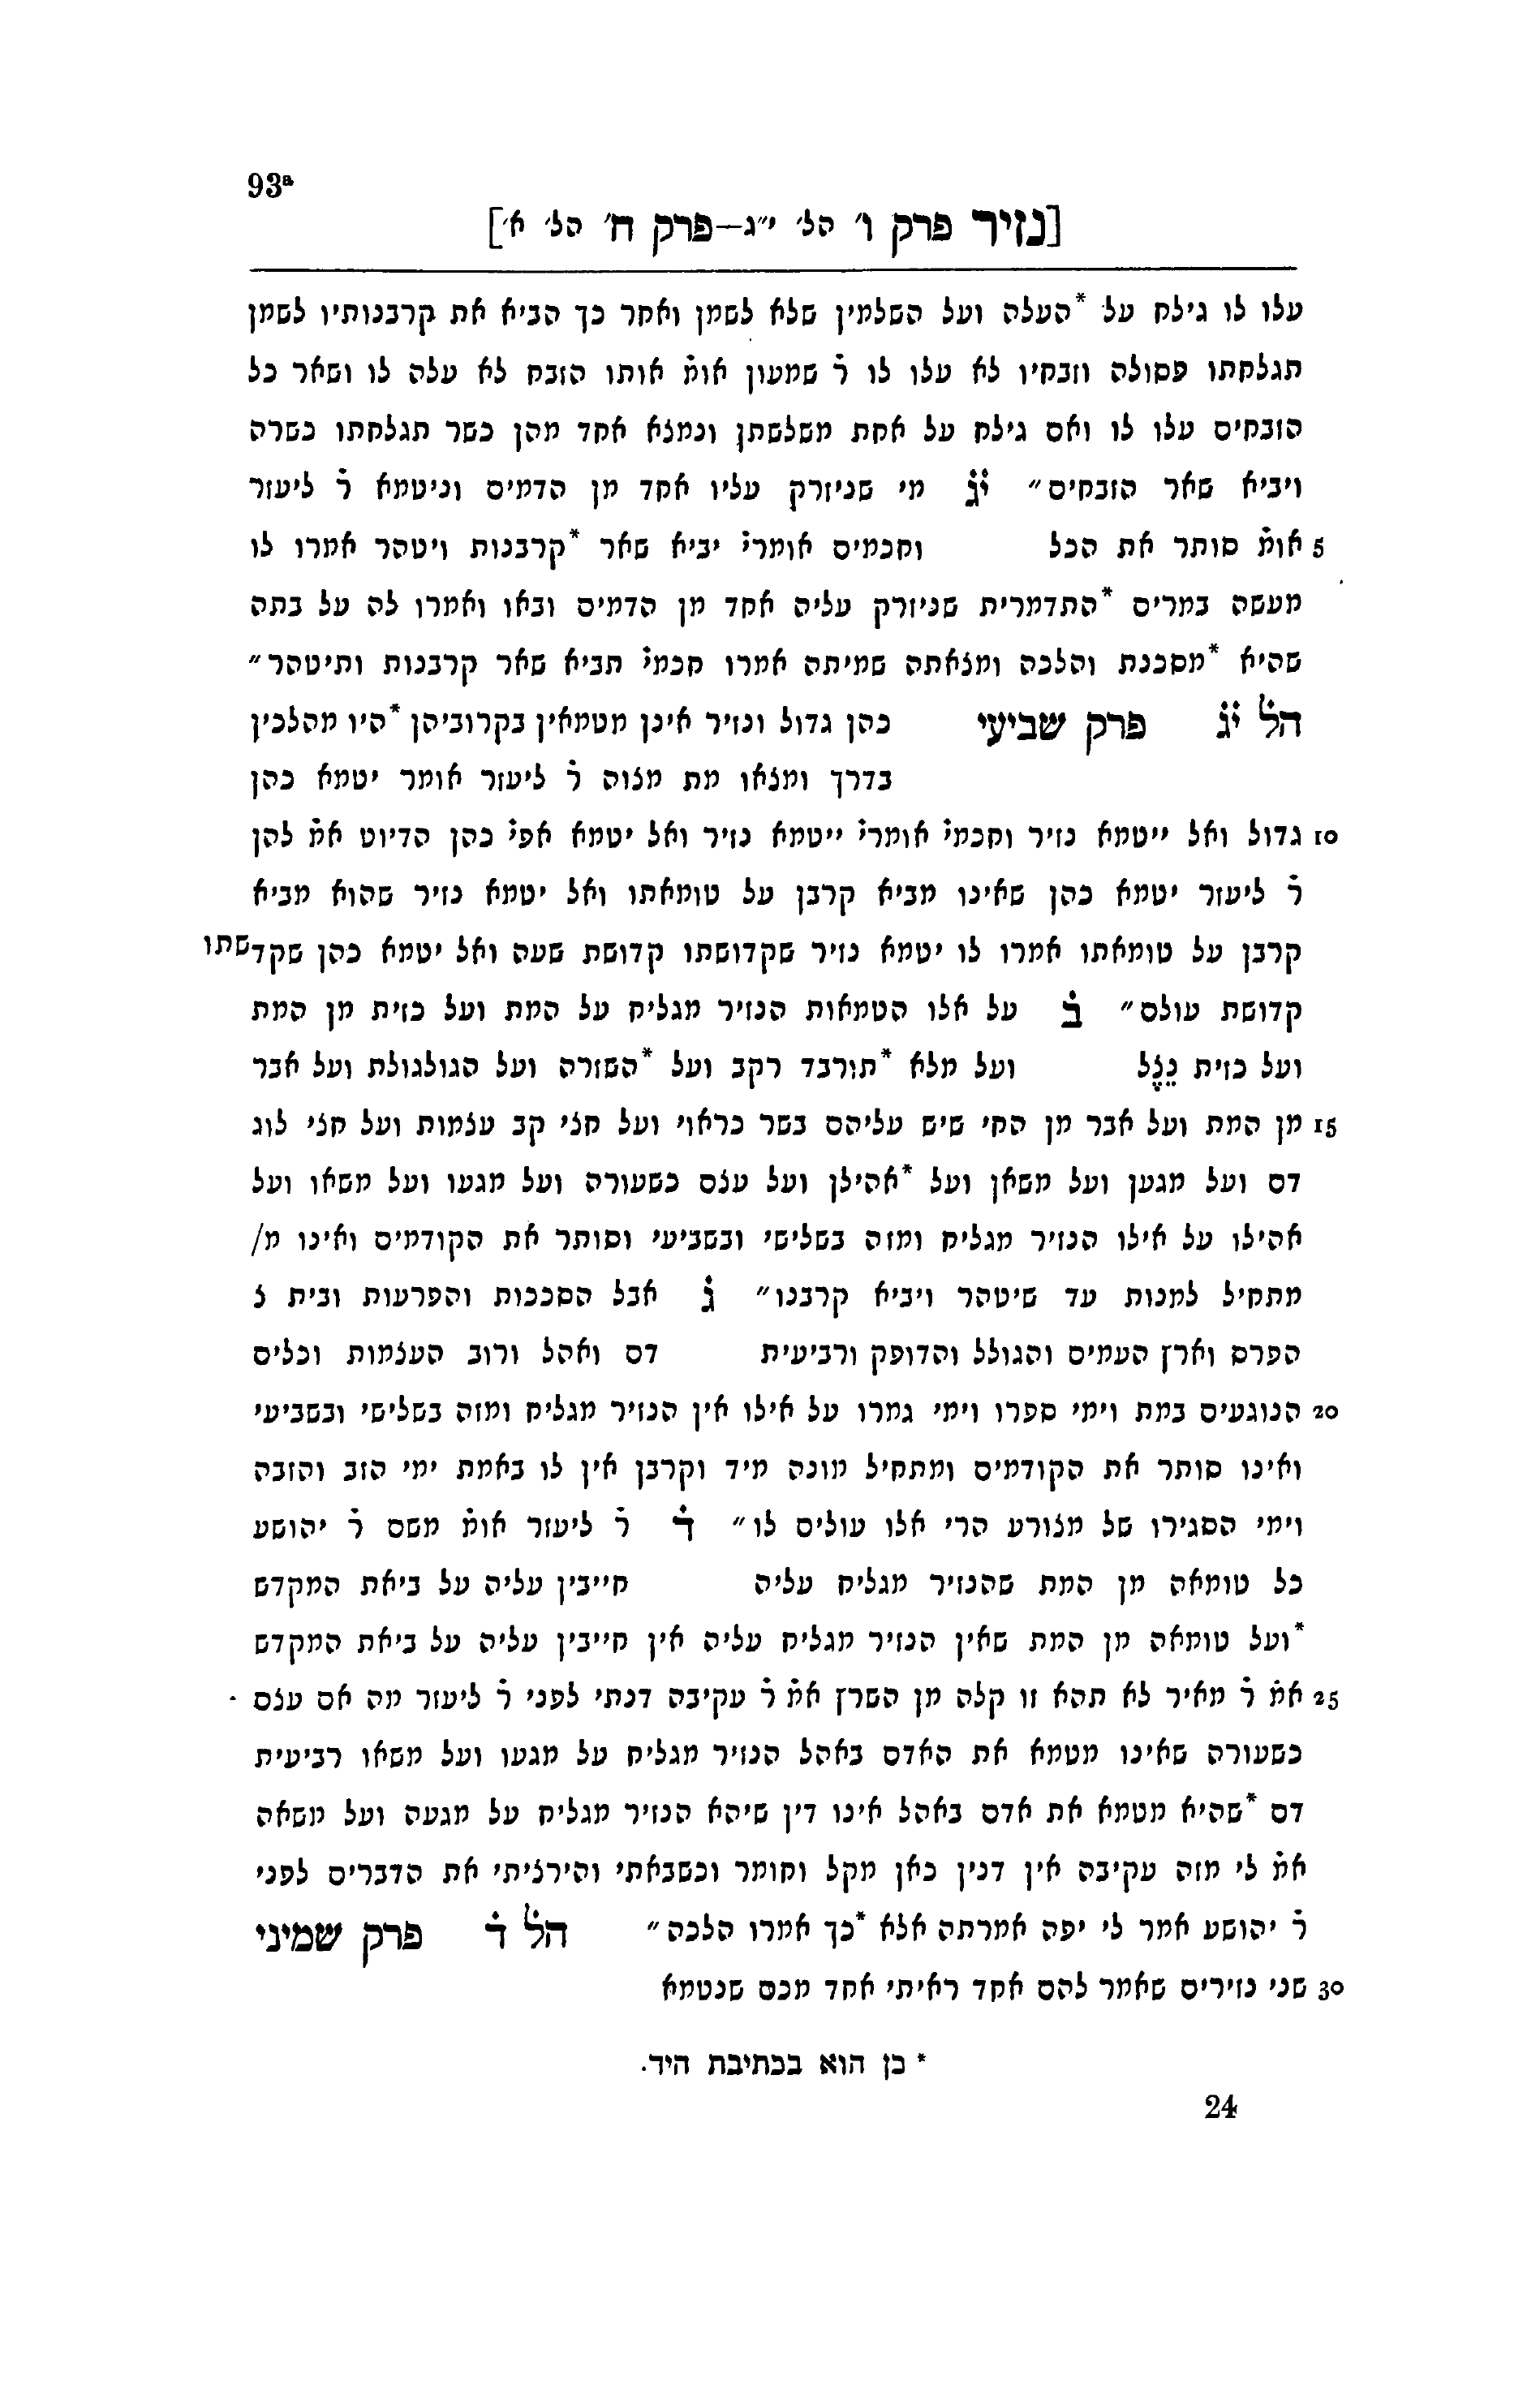 93ᵃ
[נזיר פרק ו׳ הל׳ י״ג—פרק ח׳ הל׳ א׳]
עלו לו גילח על *העלה ועל השלמין שלא לשמן ואחר כך הביא את קרבנותיו לשמן
תגלחתו פסולה וזבחיו לא עלו לו ר̇ שמעון אומ̇ אותו הזבח לא עלה לו ושאר כל
הזבחים עלו לו ואם גילח על אחת משלשתן ונמצא אחד מהן כשר תגלחתו כשרה
ויביא שאר הזבחים״ י̇ג̇ מי שניזרק עליו אחד מן הדמים וניטמא ר̇ ליעזר
5 אומ̇ סותר את הכל וחכמים אומרי̇ יביא שאר *קרבנות ויטהר אמרו לו
מעשה במרים *התדמרית שניזרק עליה אחד מן הדמים ובאו ואמרו לה על בתה
שהיא *מסכנת והלכה ומצאתה שמיתה אמרו חכמי̇ תביא שאר קרבנות ותיטהר״
הל̇ י̇ג̇ פרק שביעי כהן גדול ונזיר אינן מטמאין בקרוביהן *היו מהלכין
בדרך ומצאו מת מצוה ר̇ ליעזר אומר יטמא כהן
10 גדול ואל ייטמא נזיר וחכמי̇ אומרי̇ ייטמא נזיר ואל יטמא אפי̇ כהן הדיוט אמ̇ להן
ר̇ ליעזר יטמא כהן שאינו מביא קרבן על טומאתו ואל יטמא נזיר שהוא מביא
קרבן על טומאתו אמרו לו יטמא נזיר שקדושתו קדושת שעה ואל יטמא כהן שקדשתו
קדושת עולם״ ב̇ על אלו הטמאות הנזיר מגליח על המת ועל כזית מן המת
ועל כזית נֵצֶל ועל מלא *תורבד רקב ועל *השזרה ועל הגולגולת ועל אבר
15 מן המת ועל אבר מן החי שיש עליהם בשר כראוי ועל חצי קב עצמות ועל חצי לוג
דם ועל מגען ועל משאן ועל *אהילן ועל עצם כשעורה ועל מגעו ועל משאו ועל
אהילו על אילו הנזיר מגליח ומזה בשלישי ובשביעי וסותר את הקודמים ואינו מ/
מתחיל למנות עד שיטהר ויביא קרבנו״ ג̇ אבל הסככות והפרעות ובית צ
הפרס וארץ העמים והגולל והדופק ורביעית דם ואהל ורוב העצמות וכלים
20 הנוגעים במת וימי ספרו וימי גמרו על אילו אין הנזיר מגליח ומזה בשלישי ובשביעי
ואינו סותר את הקודמים ומתחיל מונה מיד וקרבן אין לו באמת ימי הזב והזבה
וימי הסגירו של מצורע הרי אלו עולים לו״ ד̇ ר̇ ליעזר אומ̇ משם ר̇ יהושע
כל טומאה מן המת שהנזיר מגליח עליה חייבין עליה על ביאת המקדש
*ועל טומאה מן המת שאין הנזיר מגליח עליה אין חייבין עליה על ביאת המקדש
25 אמ̇ ר̇ מאיר לא תהא זו קלה מן השרץ אמ̇ ר̇ עקיבה דנתי לפני ר̇ ליעזר מה אם עצם
כשעורה שאינו מטמא את האדם באהל הנזיר מגליח על מגעו ועל משאו רביעית
דם *שהיא מטמא את אדם באהל אינו דין שיהא הנזיר מגליח על מגעה ועל משאה
אמ̇ לי מזה עקיבה אין דנין כאן מקל וחומר וכשבאתי והירציתי את הדברים לפני
ר̇ יהושע אמר לי יפה אמרתה אלא *כך אמרו הלכה״ הל̇ ד̇ פרק שמיני
30 שני נזירים שאמר להם אחד ראיתי אחד מכם שנטמא
* כן הוא בכתיבת היד.
24